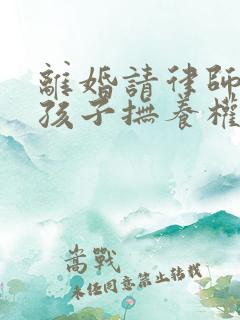 離婚請律師
孩子撫養權
嵩戰
未经同意禁止转载